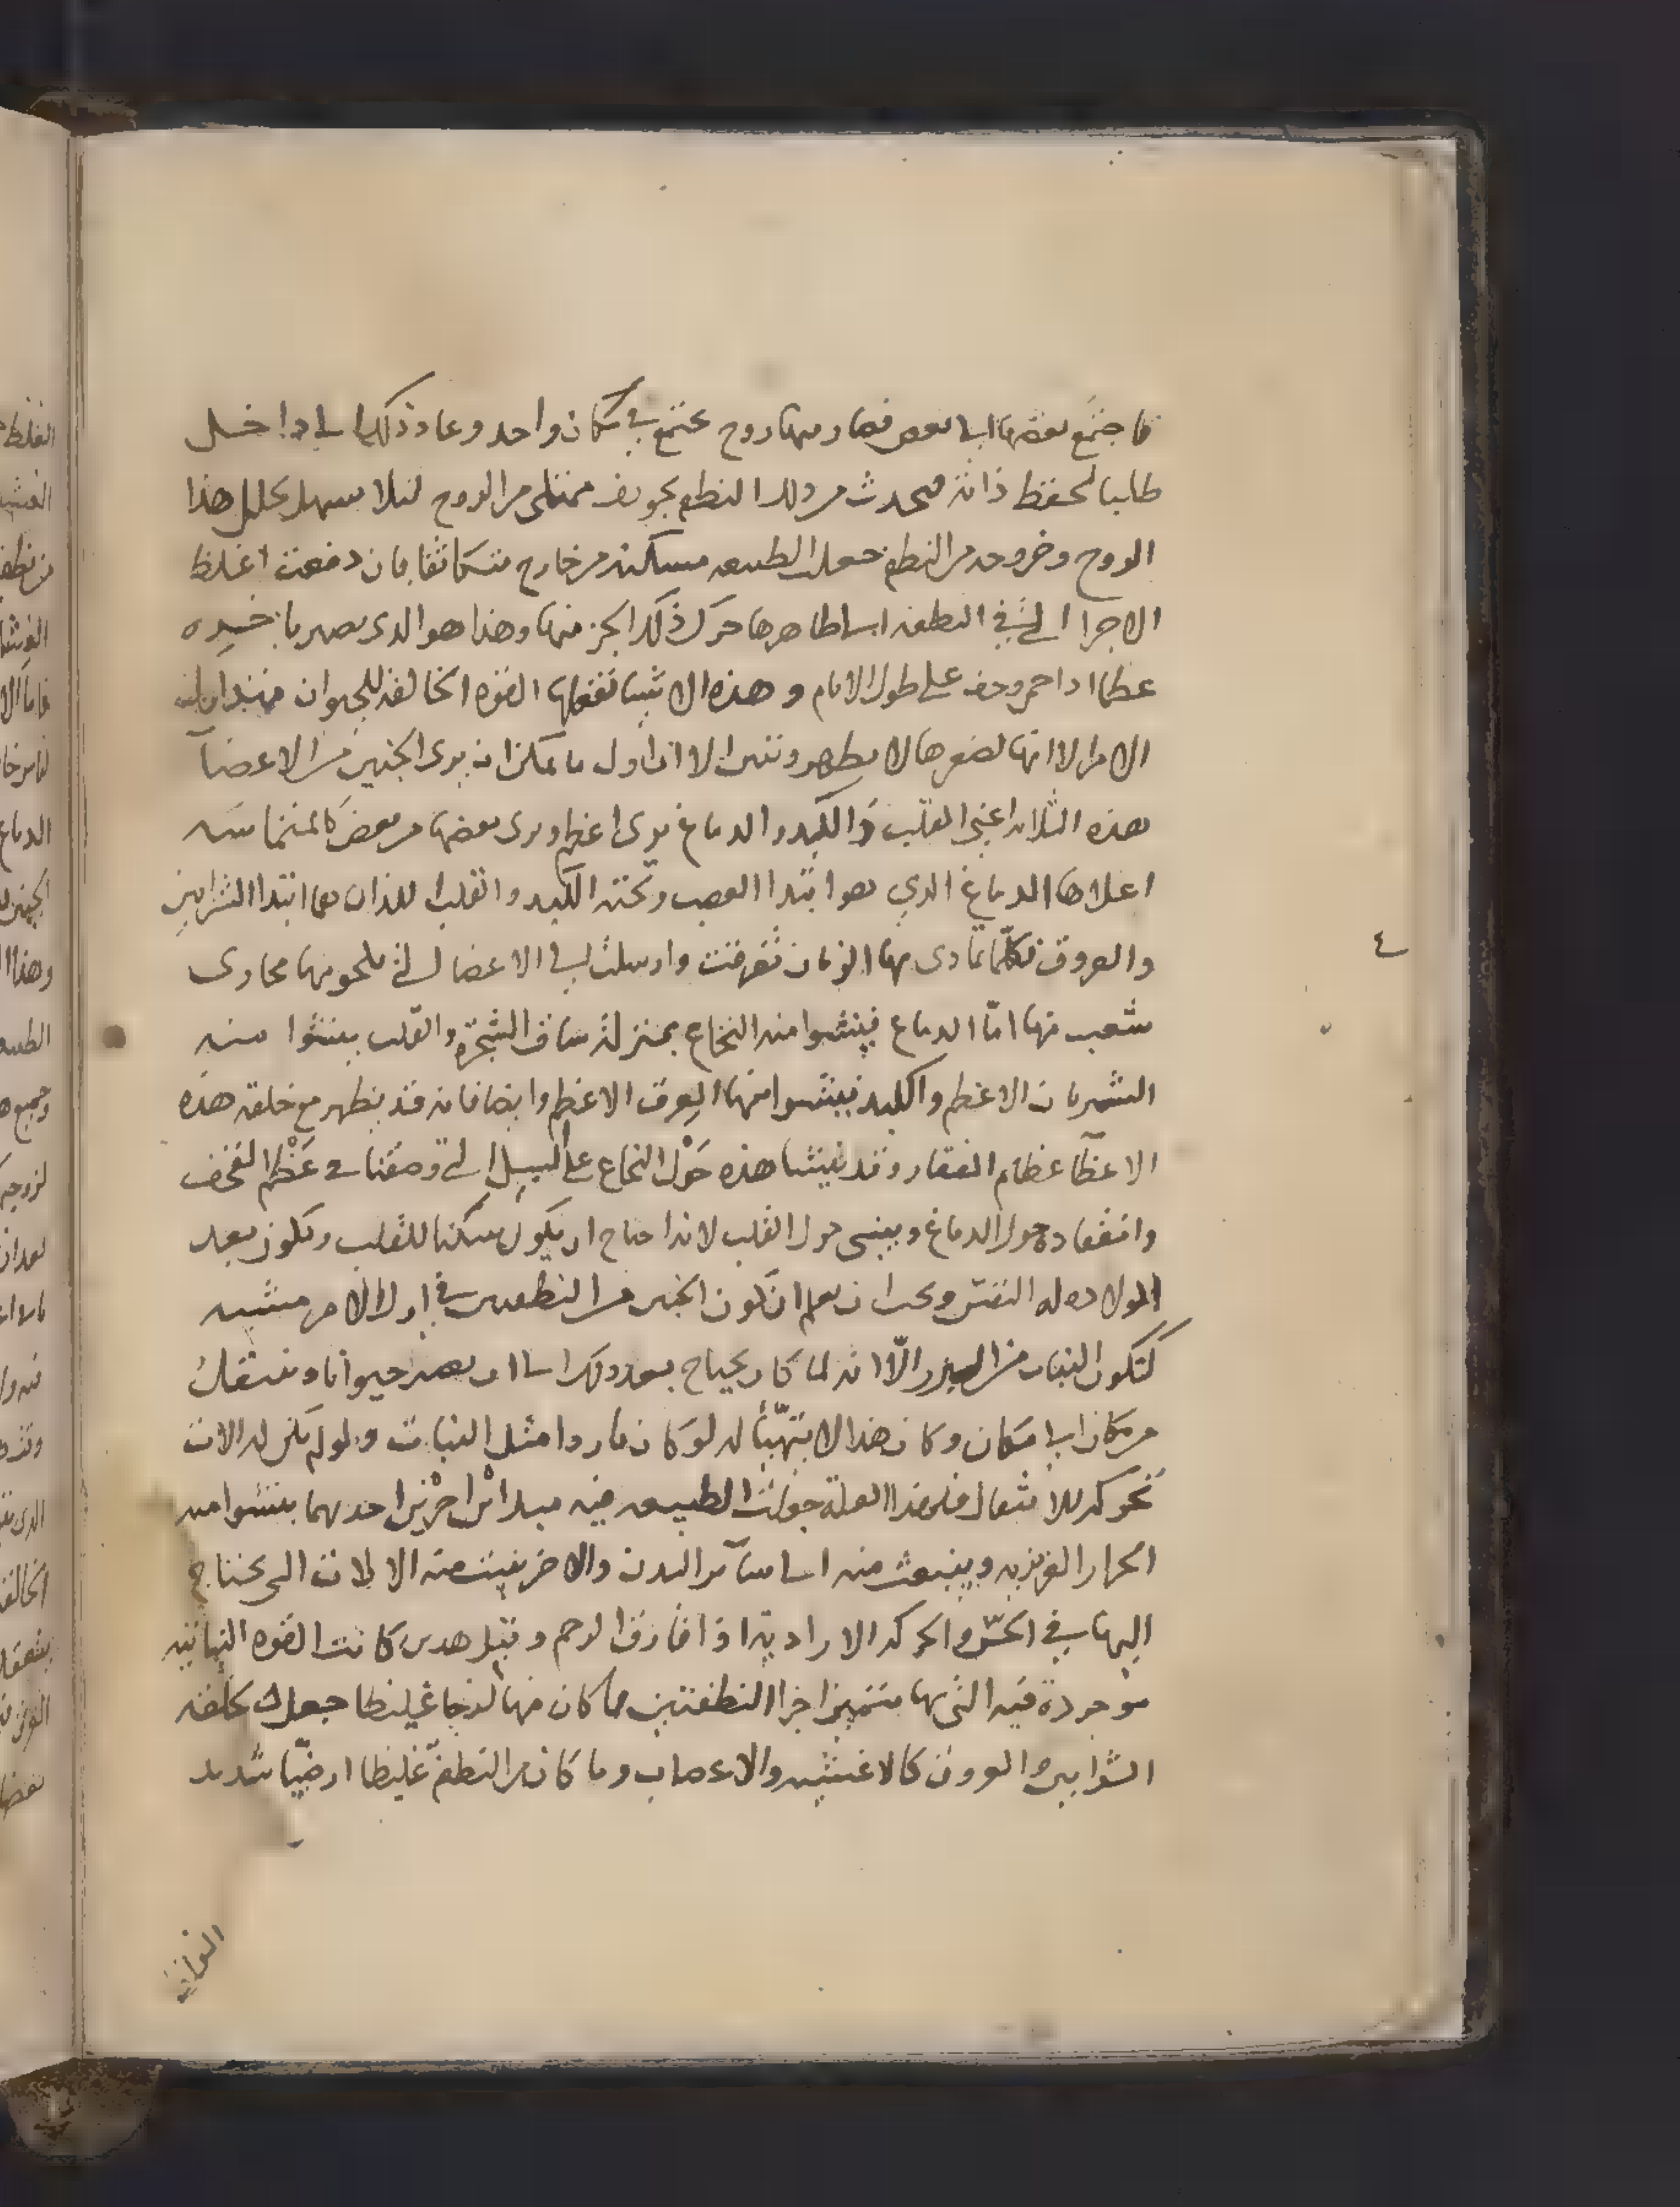 فاجتمع بعضها الى بعض فصار منها روح مجتمع في مكان واحد وعاد ذلك الى داخل
طالبا لحفظ ذاته فيحدث من ذلك النطفه تجويف ممتلى من الروح لئلا يسهل تحلل هذا
الروح وخروجه من النطفه جعلت الطبيعه مسكنه من خارج متكاثفا بان دفعت اغلظ
الاجزا التي في النطفه الى ظاهرها حول ذلك الجز منها وهذا هو الذي يصير باخره
عظما اذا حمى وجف على طول الايام وهذه الاشيا تفعلها القوه الخالقه للحيوان منذ اول
الامر الا انها لصغرها لا يظهر وتتبين الا ان اول ما يمكن ان يرى الجنين من الاعضآ
هذه الثلاثه اعني القلب والكبد والدماغ يرى اعظم ويرى بعضها من بعض كالمتماسه
اعلاها الدماغ الذي هو ابتدا العصب وتحته الكبد والقلب اللذان هما ابتدا الشرايين
والعروق فكلما تمادى بها الزمان تفرقت وارسلت الى الاعضا التي تلحو منها مجارى
شعب منها امّا الدماغ فينشوا منه النخاع بمنزلة ساق الشجرة والقلب ينشوا منه
الشريان الاعظم والكبد ينشوا منها العرق الاعظم وايضا فانه قد يظهر مع خلقه هذه
الاعضآ عظام الفقار وقد ينشا هذه حَوْل النخاع على السبيل التي وصفنا في عَظْم القحف
وانعقاده حول الدماغ وينشى حول القلب لانه احتاج ان يكون مسكنا للقلب ويكون بعد
المولاد اله التنفس ويجب ان يعلم ان تكون الجنين من النطفتين في اول الامر شبيه
كتكون النبات من البزر الّا انه لما كان يحتاج بعد ذلك الى ان يصير حيوانا وينتقل
من مكان الى مكان وكان هذا لا يتهيّأ له لو كان باردا مثل النبات ولو لم تكن له الات
تحركه للانتقال فلهذا العلة جعلت الطبيعه فيه مبدا اين اخرين احدهما ينشوا منه
الحرار الغريزيه وينبعث منه الى سآير البدن والاخر ينبث منه الالات التي يحتاج
اليها في الحسّ والحركه الاراديّة اذا فارق الرحم وقبل هذين كانت القوه النباتيه
موجودة فيه التي بها متميز اجزا النطفتين فما كان منها لزجا غليظا جعلت تخلقه
الشرايين والعروق كالاغشيه والاعصاب وما كان من النطفه غليظا ارضيّا شديد